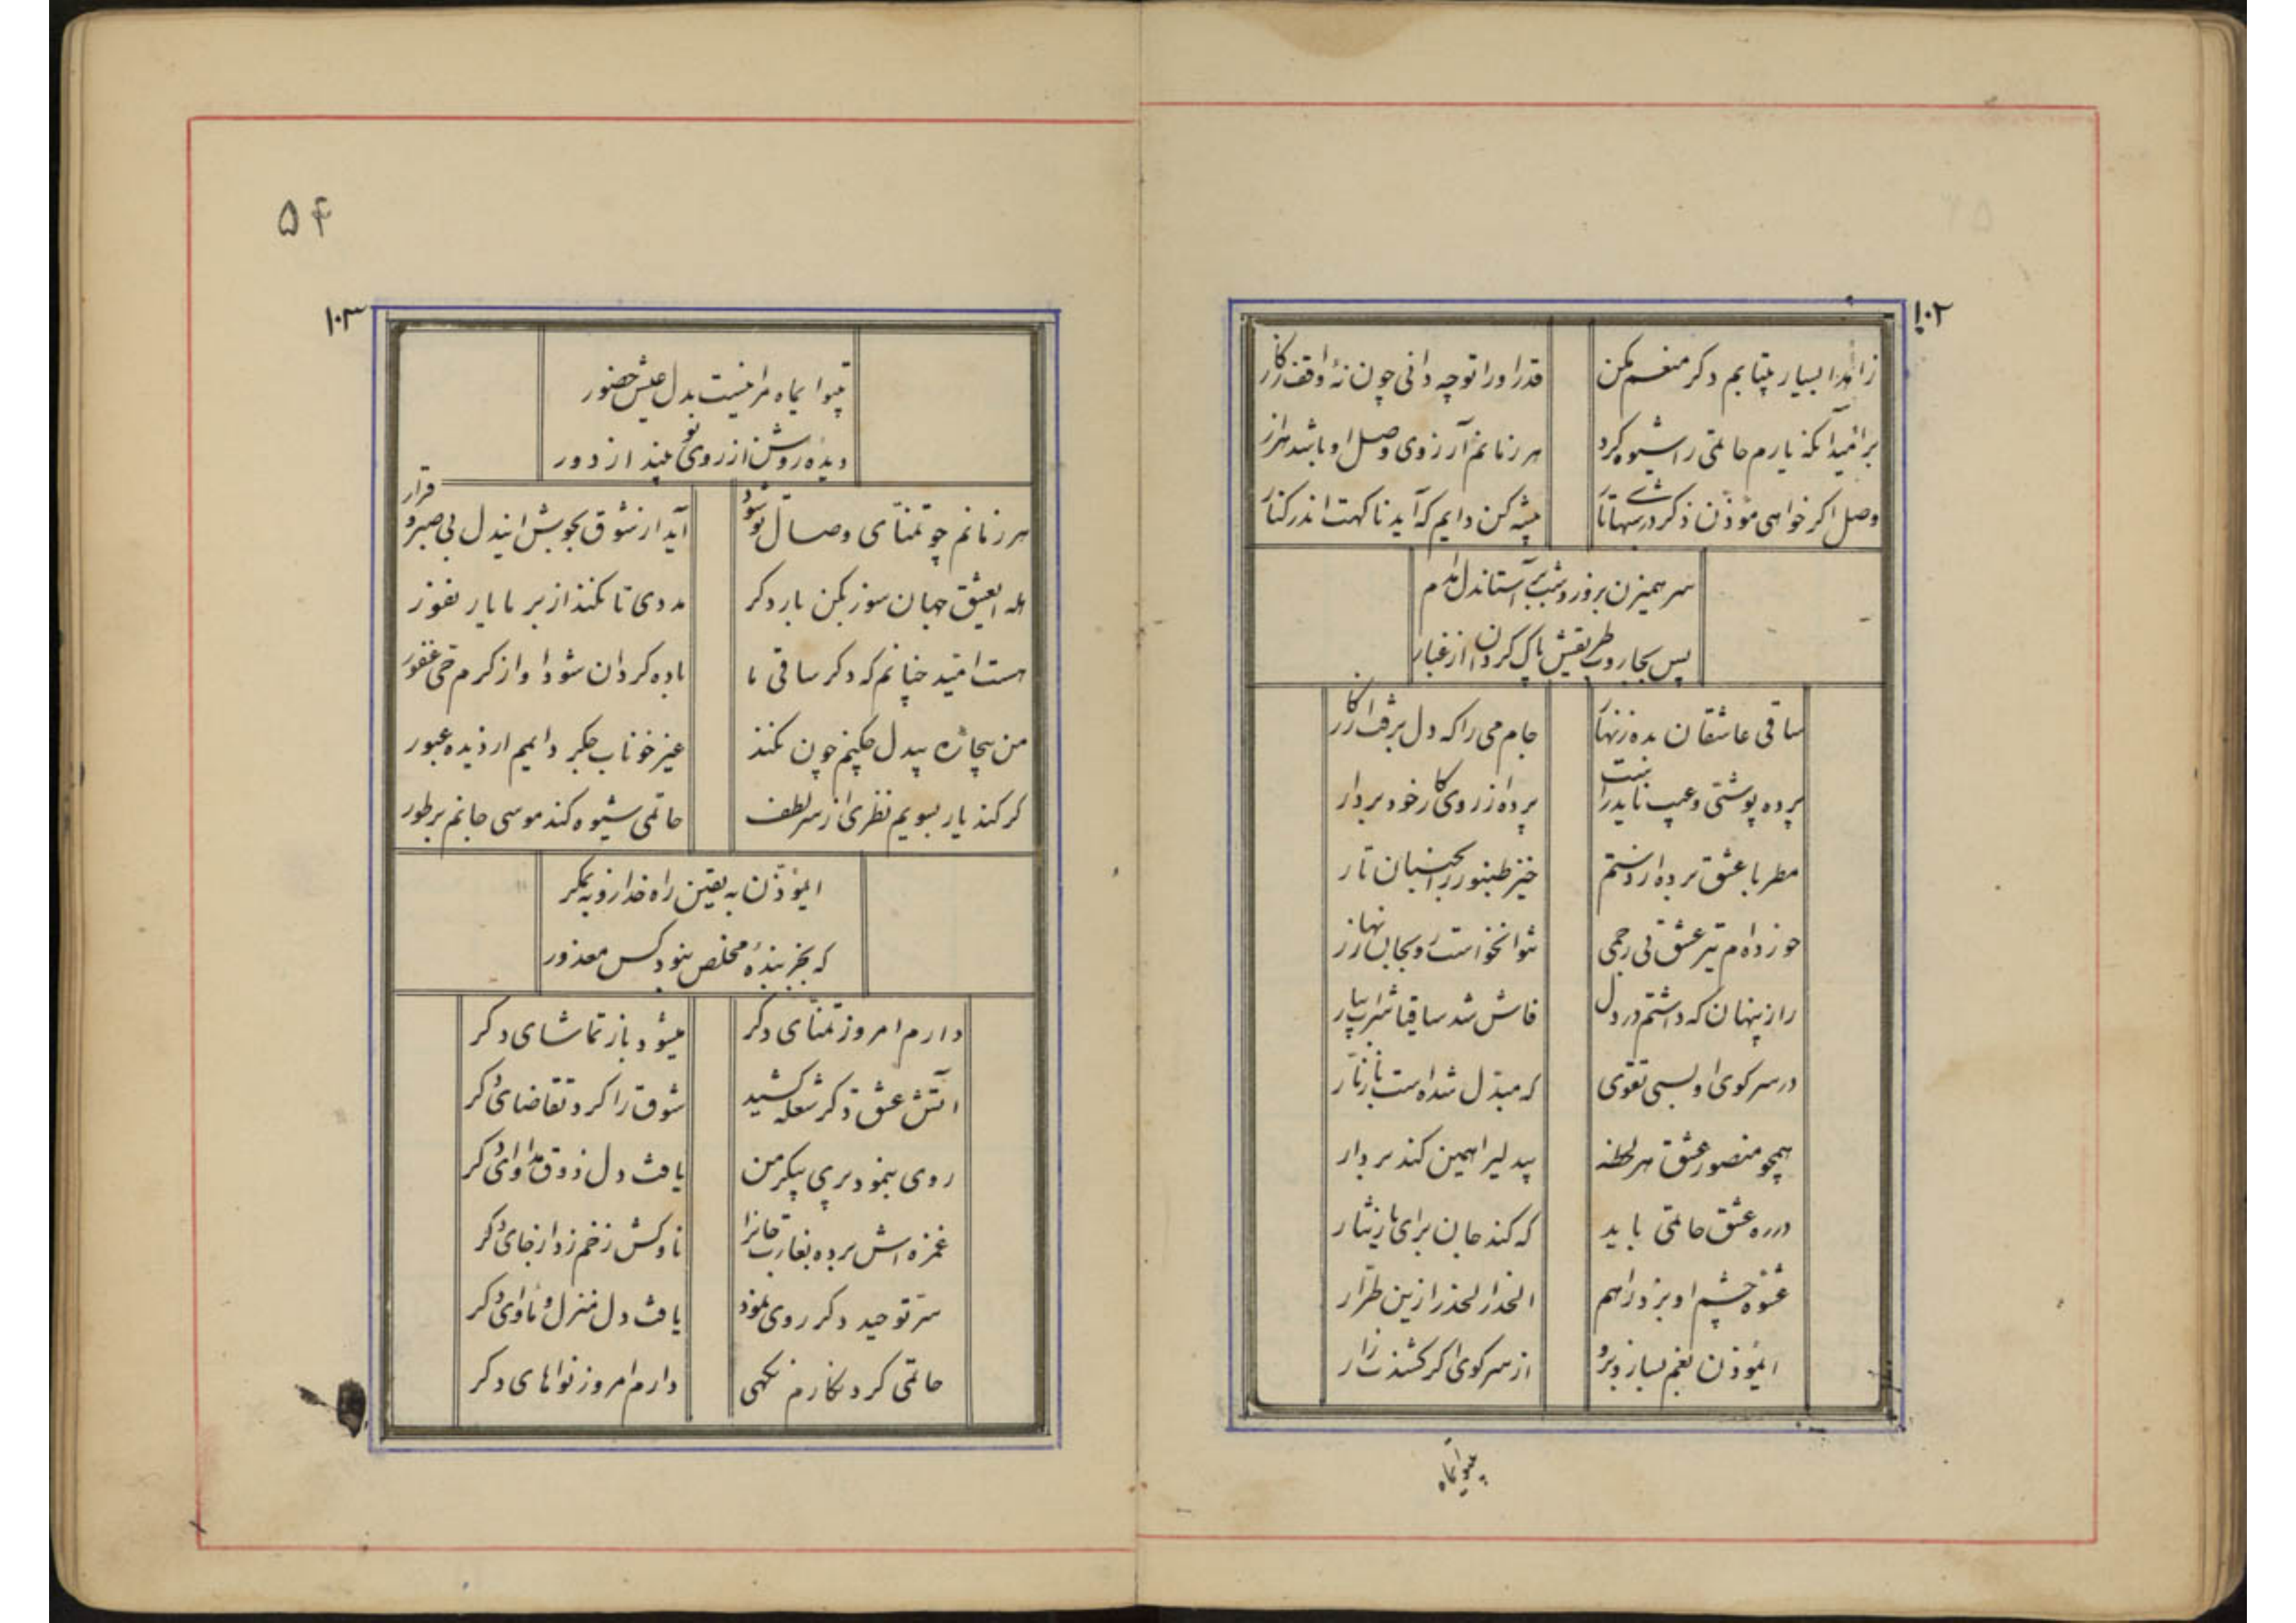 ۱۰۲
زاهدا بسیار بیتابم دکر منعم مکن
قدر او را تو چه دانی چون نهٔ واقف ز کار
بر امید آنکه یارم حاتمی را شیوه کرد
هر زمانم آرزوی وصل او باشد هزار
وصل اکر خواهی مؤذن ذکر در شبهای تار
پیشه کن دایم که آید ناکهت اندر کنار
سر همیزن روز و شب بر آستان دل مدام
پس بجاروب طریقش پاک کردان از غبار
ساقی عاشقان بده زنهار
جام می را که دل برفت از کار
پرده پوشتی و عیب ناید راست
پرده از روی کار خود بردار
مطربا عشق برده از دستم
خیز طنبور را بجنبان تار
خورده ام تیر عشق بی رحمی
راز پنهان که داشتم در دل
فاش شد ساقیا شراب بیار
در سر کوی او بسی تقوی
که مبدل شده است با زنار
همچو منصور عشق هر لحظه
بیدلیرا همین کند بر دار
در ره عشق حاتمی باید
که کند جان برای یار نثار
عشوه چشم او برد راهم
الحذر الحذر ازین طرار
ایمؤذن بغم بساز و برو
از سر کوی او اکر کشدت زار
بیتو ایماه
۵۴
۱۰۳
بیتو ایماه مرا نیست بدل عیش حضور
دیدهٔ روشن از روی تو بیند از دور
هر زمانم چو تمنای وصال تو شود
آید از شوق بجوش ایندل بی صبر و قرار
هله ایعشق جهان سوز بکن بار دکر
مددی تا نکند از بر ما یار نفور
هست امید چنانم که دکر ساقی ما
باده کردان شود او از کرم حی غفور
من بیچاره بیدل چکنم چون نکند
غیر خوناب جکر دایمم از دیده عبور
کر کند یار بسویم نظری از سر لطف
حاتمی شیوه کند موسی جانم بر طور
ایمؤذن به یقین راه خدا رو به مکر
که بجز بندهٔ مخلص نبود کس معذور
دارم امروز تمنای دکر
میشود باز تماشای دکر
آتش عشق دکر شعله کشید
شوق را کرد تقاضای دکر
روی بنمود پری پیکر من
یافت دل ذوق مداوای دکر
غمزه اش برده بغارت جانرا
ناوکش زخم زد از جای دکر
سر توحید دکر روی نمود
یافت دل منزل و ماوای دکر
حاتمی کرد نکارم نکهی
دارم امروز نواهای دکر